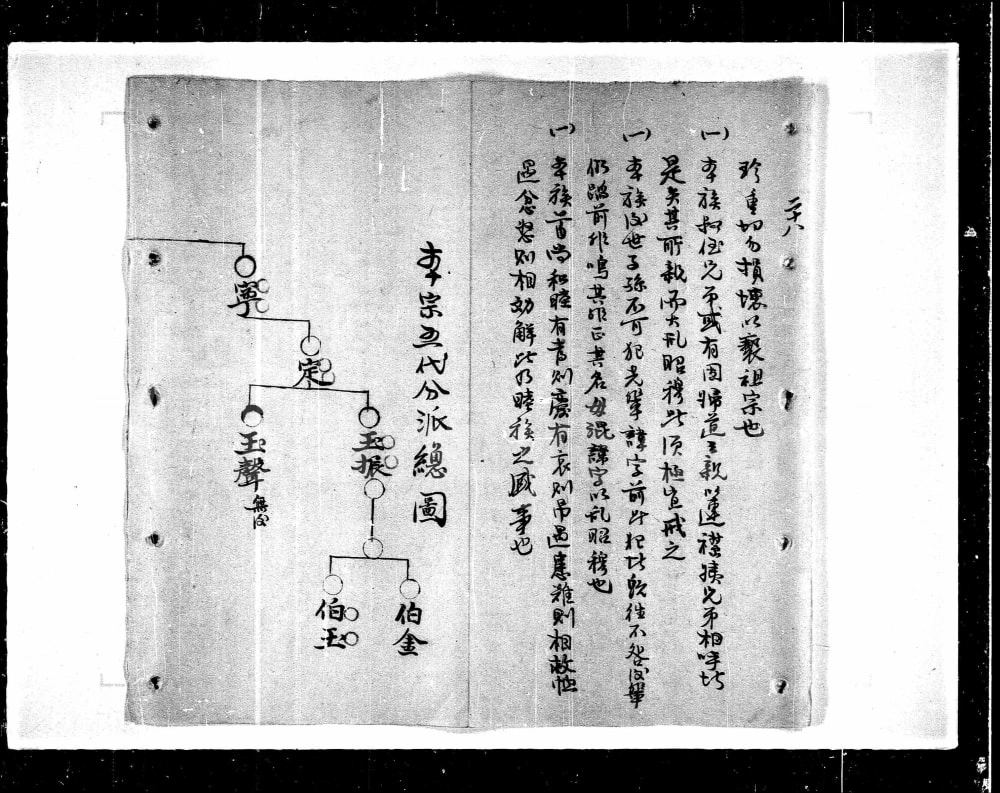 二十八
珍重切勿損壞以褻祖宗也
(一)本族叔侄兄弟或有因婦道之親以連襟姨兄弟相呼此
是失其所親而大乱昭穆此須極宜戒之
(一)本族後世子孫不可犯先輩諱字前此犯此既往不咎後輩
仍蹈前非鳴其非正其名毋混諱字以乱昭穆也
(一)本族首尚和睦有喜則慶有哀則吊遇患難則相救恤
遇忿怒則相勸解此乃睦族之盛事也
本宗五代分派總圖
寧
定
玉振
玉聲
無後
伯金
伯玉